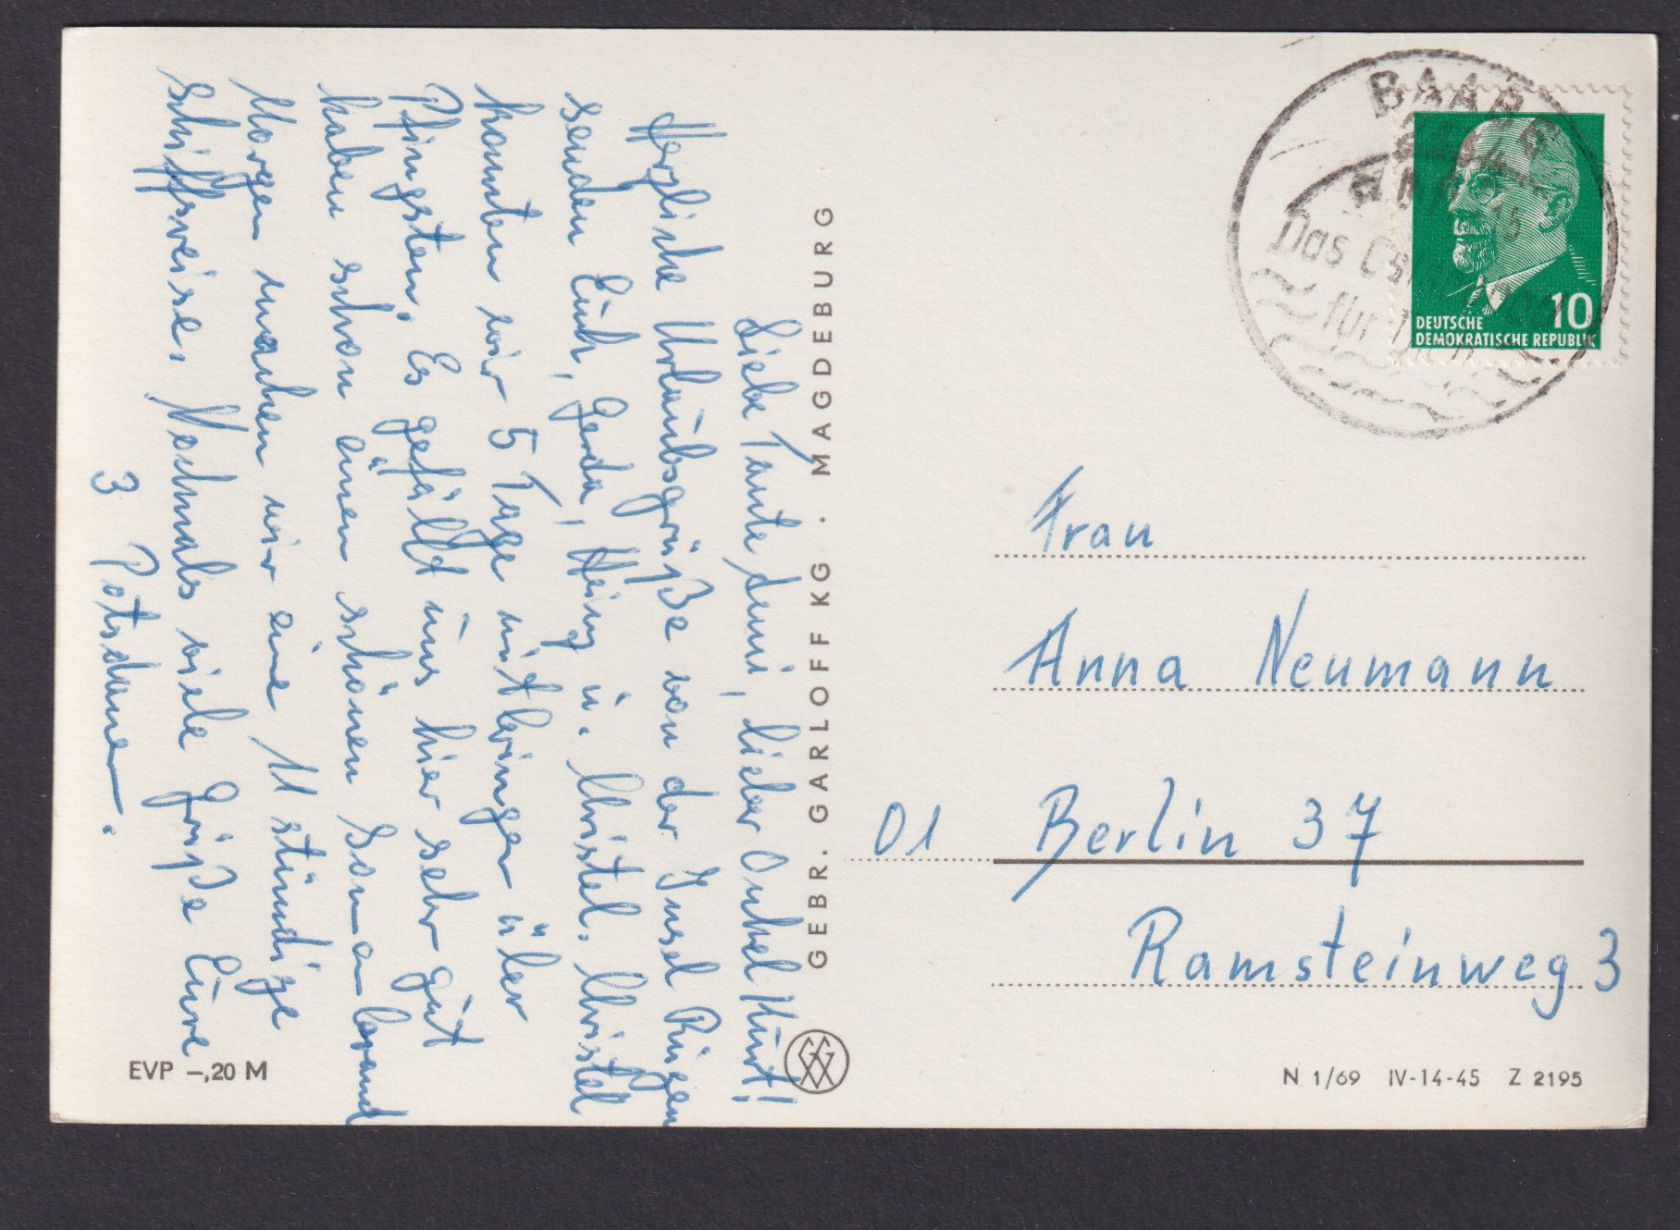 Liebe Tante Demi, lieber Onkel Kurt!
Herzliche Urlaubsgrüße von der Insel Rügen
senden Euch, Gerda, Heinz u. Christel. Christel
konnten wir 5 Tage mitbringen über
Pfingsten. Es gefällt uns hier sehr gut
haben schon einen schönen Sonnenbrand
Morgen machen wir eine 11 stündige
Schiffsreise. Nochmals viele Grüße Eure
3 Potsdamer.
EVP –,20 M
GEBR. GARLOFF KG · MAGDEBURG
BAABE
Das
für
10
DEUTSCHE
DEMOKRATISCHE REPUBLIK
Frau
Anna Neumann
01 Berlin 37
Ramsteinweg 3
N 1/69 IV-14-45 Z 2195